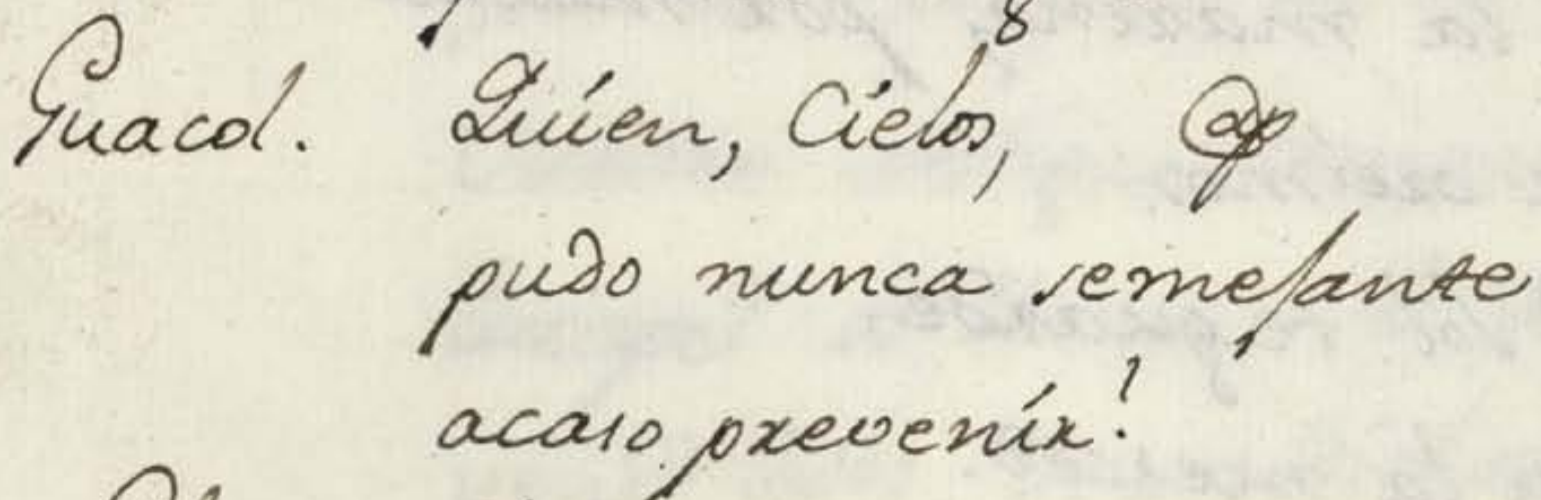 Guacol. Quien, Cielos, @p
pudo nunca semejante
acaso prevenir!